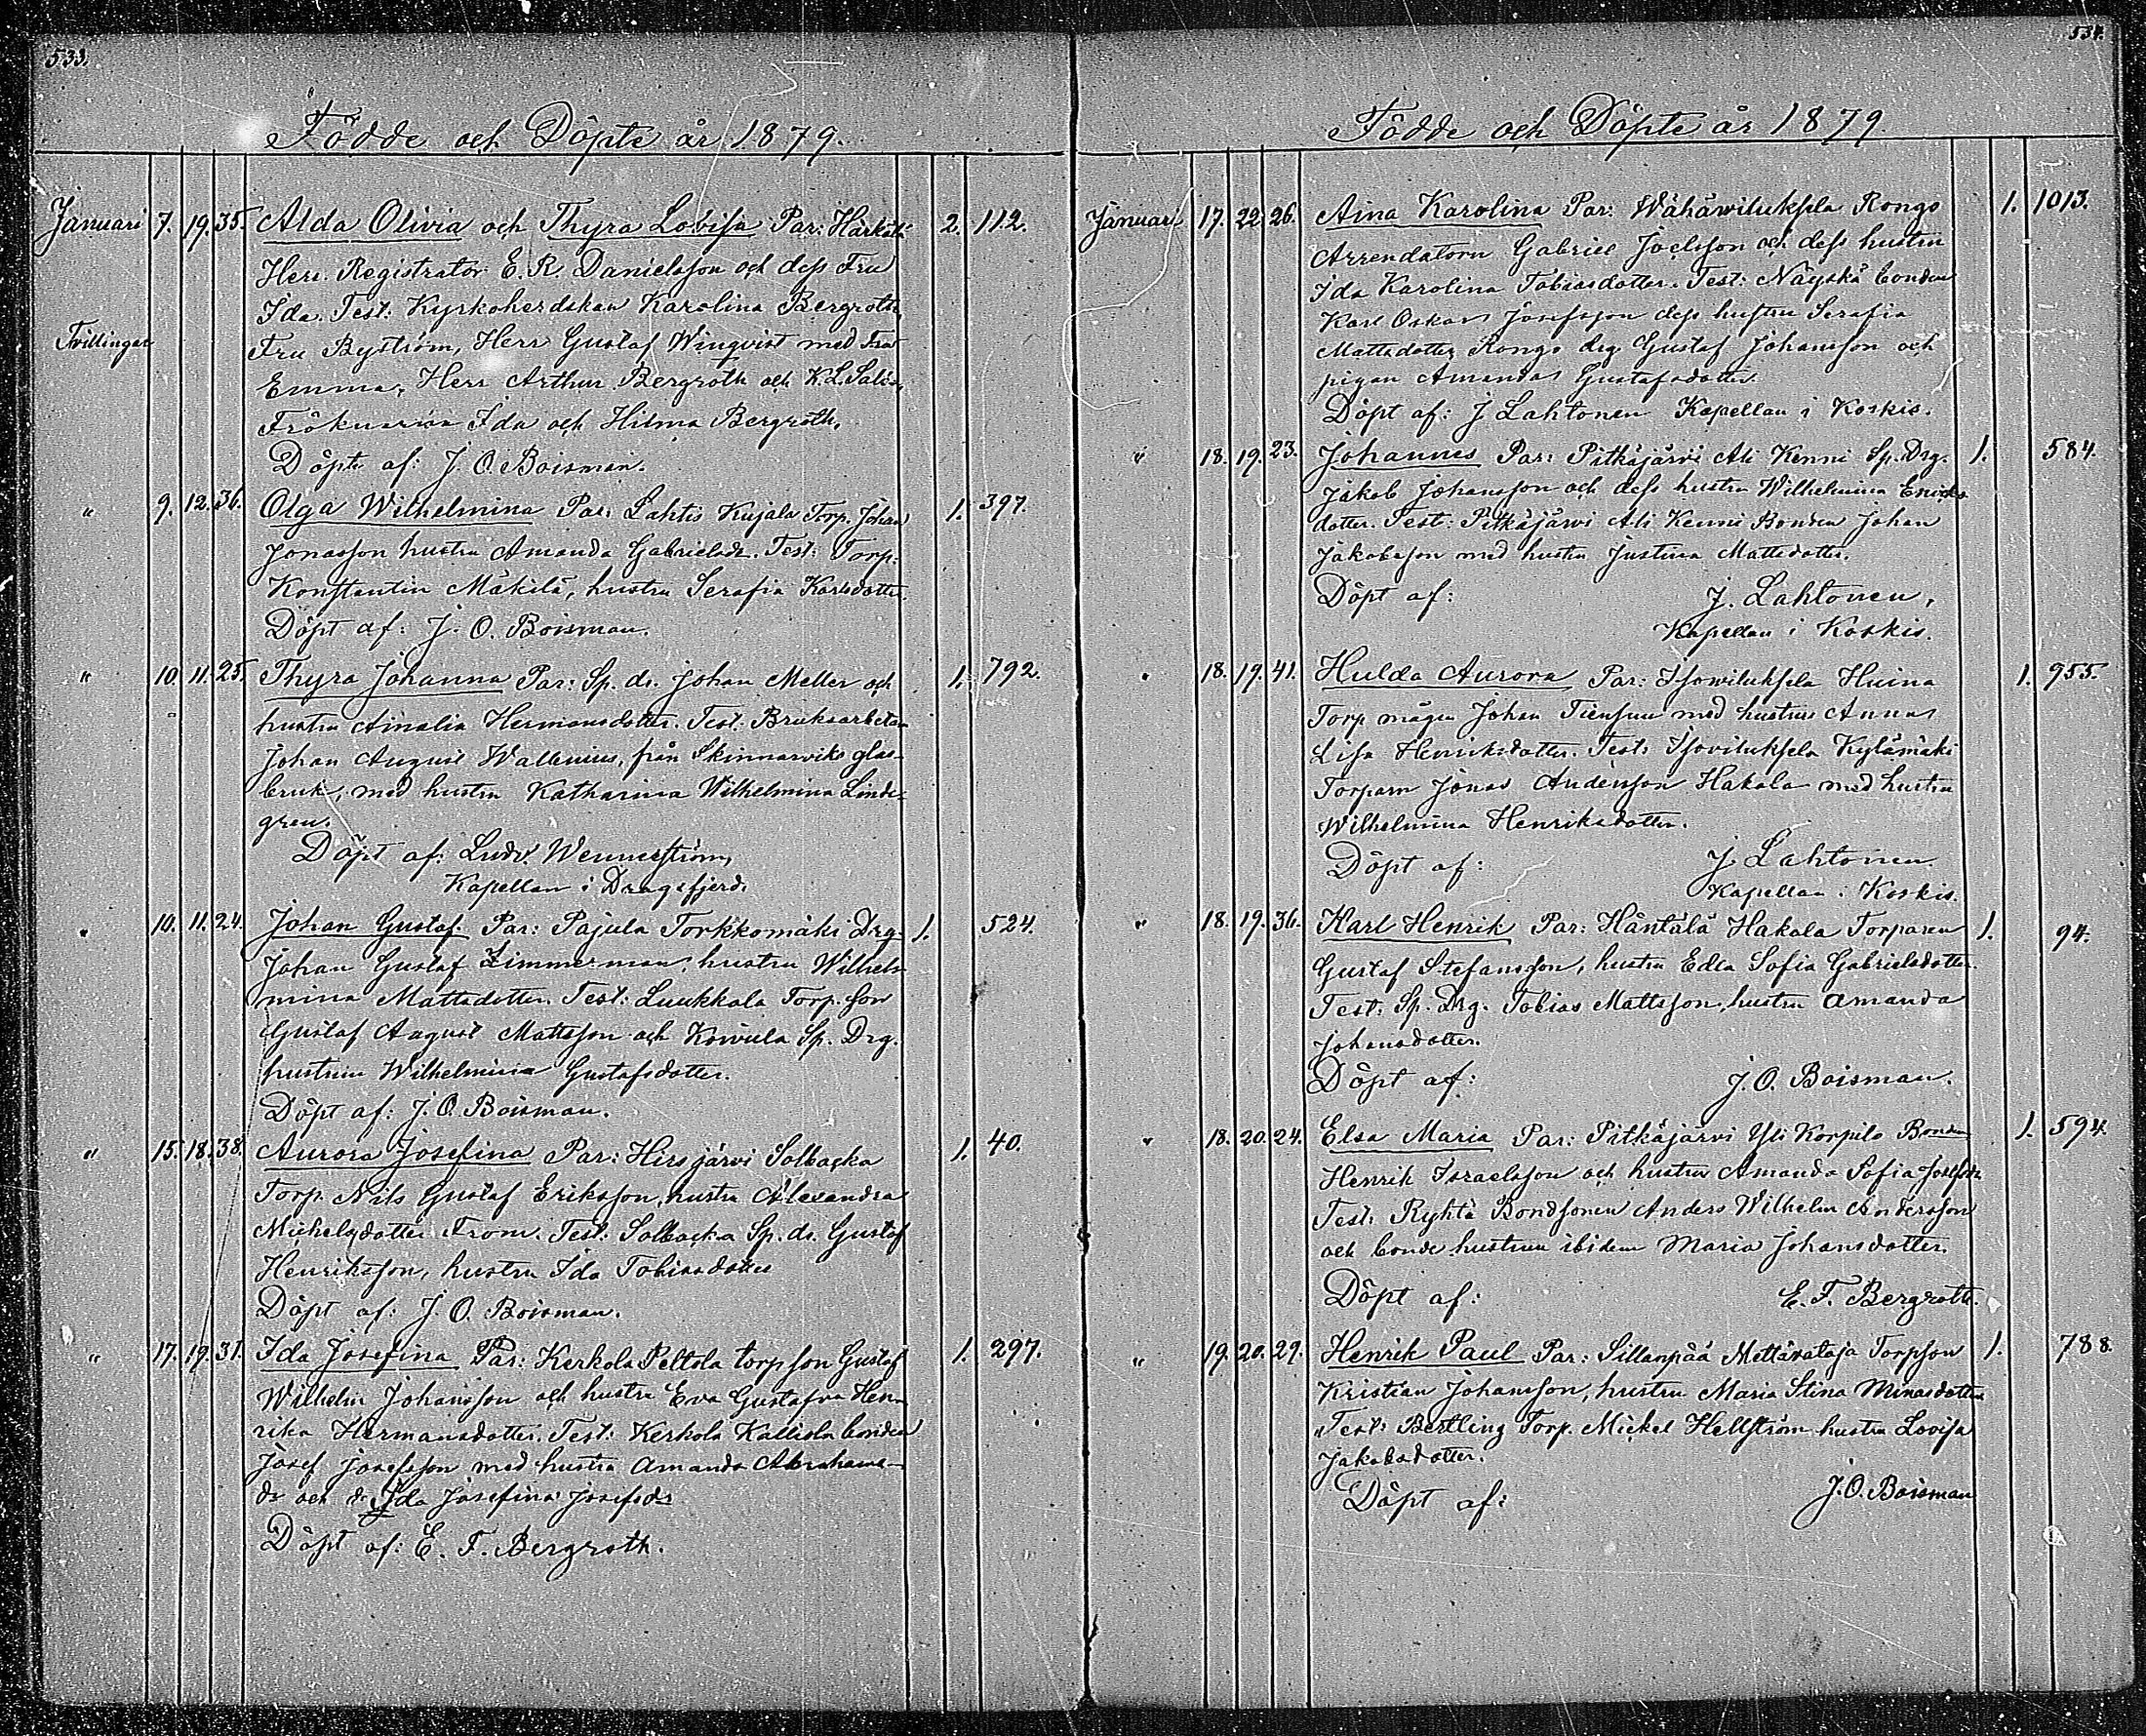 533.
Födde och Döpte år 1879.
Januari 7. 19. 35. Alda Olivia och Thyra Lovisa Par: Harkälä 2. 112.
Herr Registrator E. R. Danielsson och dess Fru
Ida. Test: Kyrkoherdskan Karolina Bergroth,
Tvillingar Fru Byström, Herr Gustaf Winqvist med Fru
Emma, Herr Arthur Bergroth och K. L.
Fröknarna Ida och Hilma Bergroth.
Döpte af: J. O. Boisman.
" 9. 12. 36. Olga Wilhelmina Par: Lahtis Kujala Torp. Johan 1. 397.
Jonasson hustru Amanda Gabrielsdr. Test: Torp:
Konstantin Mäkilä, hustru Serafia Karlsdotter.
Döpt af: J. O. Boisman.
" 10. 11. 25. Thyra Johanna Par: Sp. dr. Johan Meller och 1. 792.
hustru Amalia Hermansdotter. Test: Bruksarbetan
Johan August Wallenius, från Skinnarviks glas-
bruk, med hustru Katharina Wilhelmina Linde-
gren.
Döpt af: Ludv. Wennerström,
Kapellan i Dragsfjerd.
" 10. 11. 24. Johan Gustaf. Par: Pajula Torkkomäki Drg. 1. 524.
Johan Gustaf Zimmerman, hustru Wilhel-
mina Mattsdotter. Test: Luukkala Torp. son
Gustaf August Mattsson och Koivula Sp. Drg.
hustrun Wilhelmina Gustafsdotter.
Döpt af: J. O. Boisman.
" 15. 18. 38. Aurora Josefina Par: Hirsjärvi Solbacka 1. 40.
Torp. Nils Gustaf Eriksson, hustru Alexandra
Michelsdotter From. Test: Solbacka Sp. dr. Gustaf
Henriksson, hustru Ida Tobiasdotter
Döpt af: J. O. Boisman.
" 17. 19. 31. Ida Josefina Par: Kerkola Peltola torpson Gustaf 1. 297.
Wilhelm Johansson och hustru Eva Gustafva Hen-
rika Hermansdotter. Test: Kerkola Kalliola bonden
Josef Josefsson med hustru Amanda Abrahams-
dr och dr Ida Josefina Josefsdr
Döpt af: E. F. Bergroth.
534.
Födde och Döpte år 1879.
Januari 17. 22. 26. Aina Karolina Par: Wähäwiluksela Rongo 1. 1013.
Arrendatorn Gabriel Joelsson och dess hustru
Ida Karolina Tobiasdotter. Test: Näyskä bonden
Karl Oskar Josefsson dess hustru Serafia
Mattsdotter, Rongo drg Gustaf Johansson och
pigan Amanda Gustafsdotter.
Döpt af: J Lahtonen Kapellan i Koskis.
" 18. 19. 23. Johannes Par: Pitkäjärvi Ali Kenni Sp. Drg. 1. 584.
Jakob Johansson och dess hustru Wilhelmina Eriks
dotter. Test: Pitkäjärvi Ali Kenni Bonden Johan
Jakobsson med hustru Justina Mattsdotter.
Döpt af: J. Lahtonen,
Kapellan i Koskis.
" 18. 19. 41. Hulda Aurora Par: Isowiluksela Huina 1. 955.
Torp mågen Johan Tiensuu med hustru Anna
Lisa Henriksdotter. Test: Isoviluksela Kylämäki
Torparn Jonas Andersson Hakala med hustru
Wilhelmina Henriksdotter.
Döpt af: J Lahtonen
Kapellan i Koskis.
" 18. 19. 36. Karl Henrik Par: Häntälä Hakala Torparen 1. 94.
Gustaf Stefansson, hustru Edla Sofia Gabrielsdotter.
Test: Sp. Drg. Tobias Mattsson, hustru Amanda
Johansdotter.
Döpt af: J. O. Boisman.
" 18. 20. 24. Elsa Maria Par: Pitkäjärvi Yli Korpilo Bonden 1. 594.
Henrik Israelsson och hustru Amanda Sofia Josefsdr
Test: Ryhtä Bondsonen Anders Wilhelm Andersson
och bonde hustrun ibidem Maria Johansdotter.
Döpt af: E. F. Bergroth.
" 19. 20. 29. Henrik Paul Par: Sillanpää Mettävataja Torpson 1. 788.
Kristian Johansson, hustru Maria Stina Minasdotter
Test: Bertling Torp. Mickel Hellström hustru Lovisa
Jakobsdotter.
Döpt af: J. O. Boisman